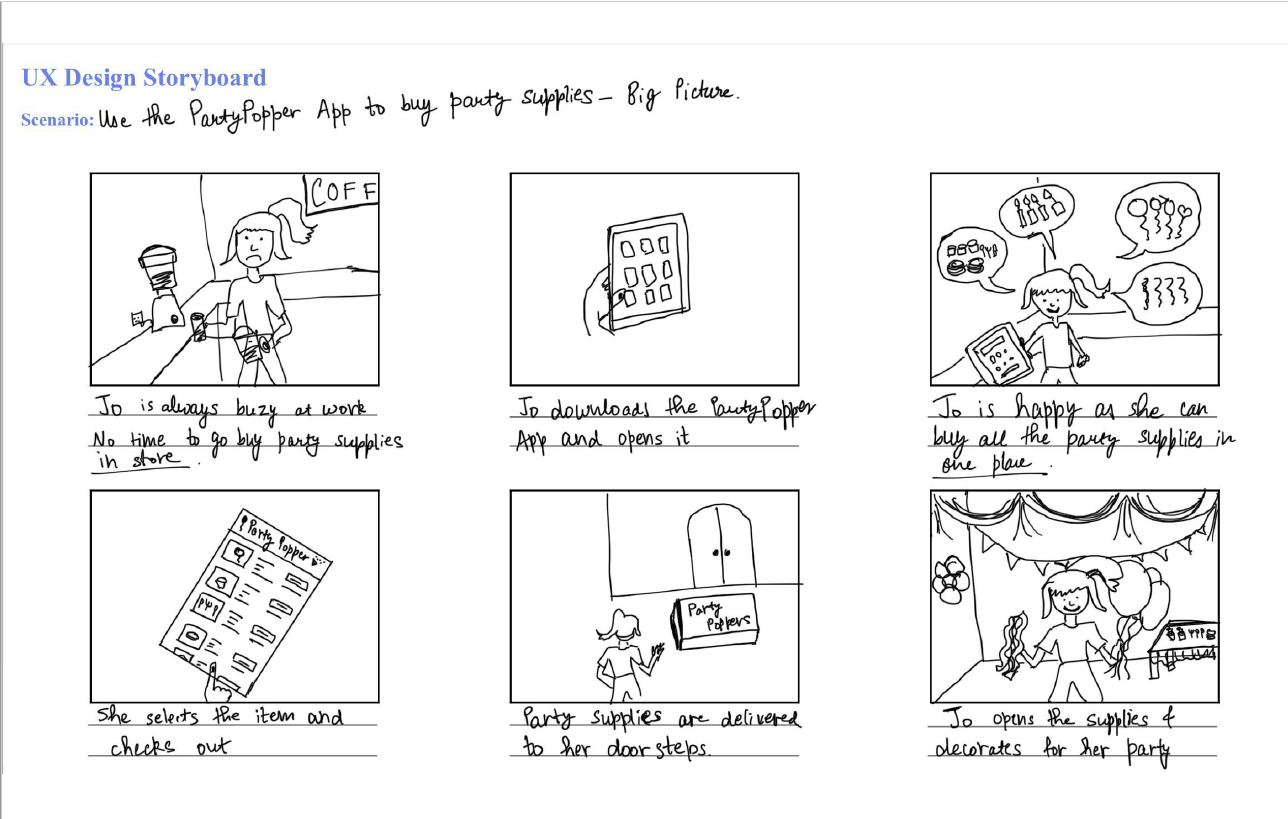 UX Design Storyboard
Scenario: Use the PartyPopper App to buy party supplies - Big Picture.
COFF
Jo is always buzy at work
No time to go buy party supplies
in store.
Jo downloads the PartyPopper
App and opens it
Jo is happy as she can
buy all the party supplies in
one place.
Party Popper
She selects the item and
checks out
Party
Poppers
Party supplies are delivered
to her door steps.
Jo opens the supplies &
decorates for her party